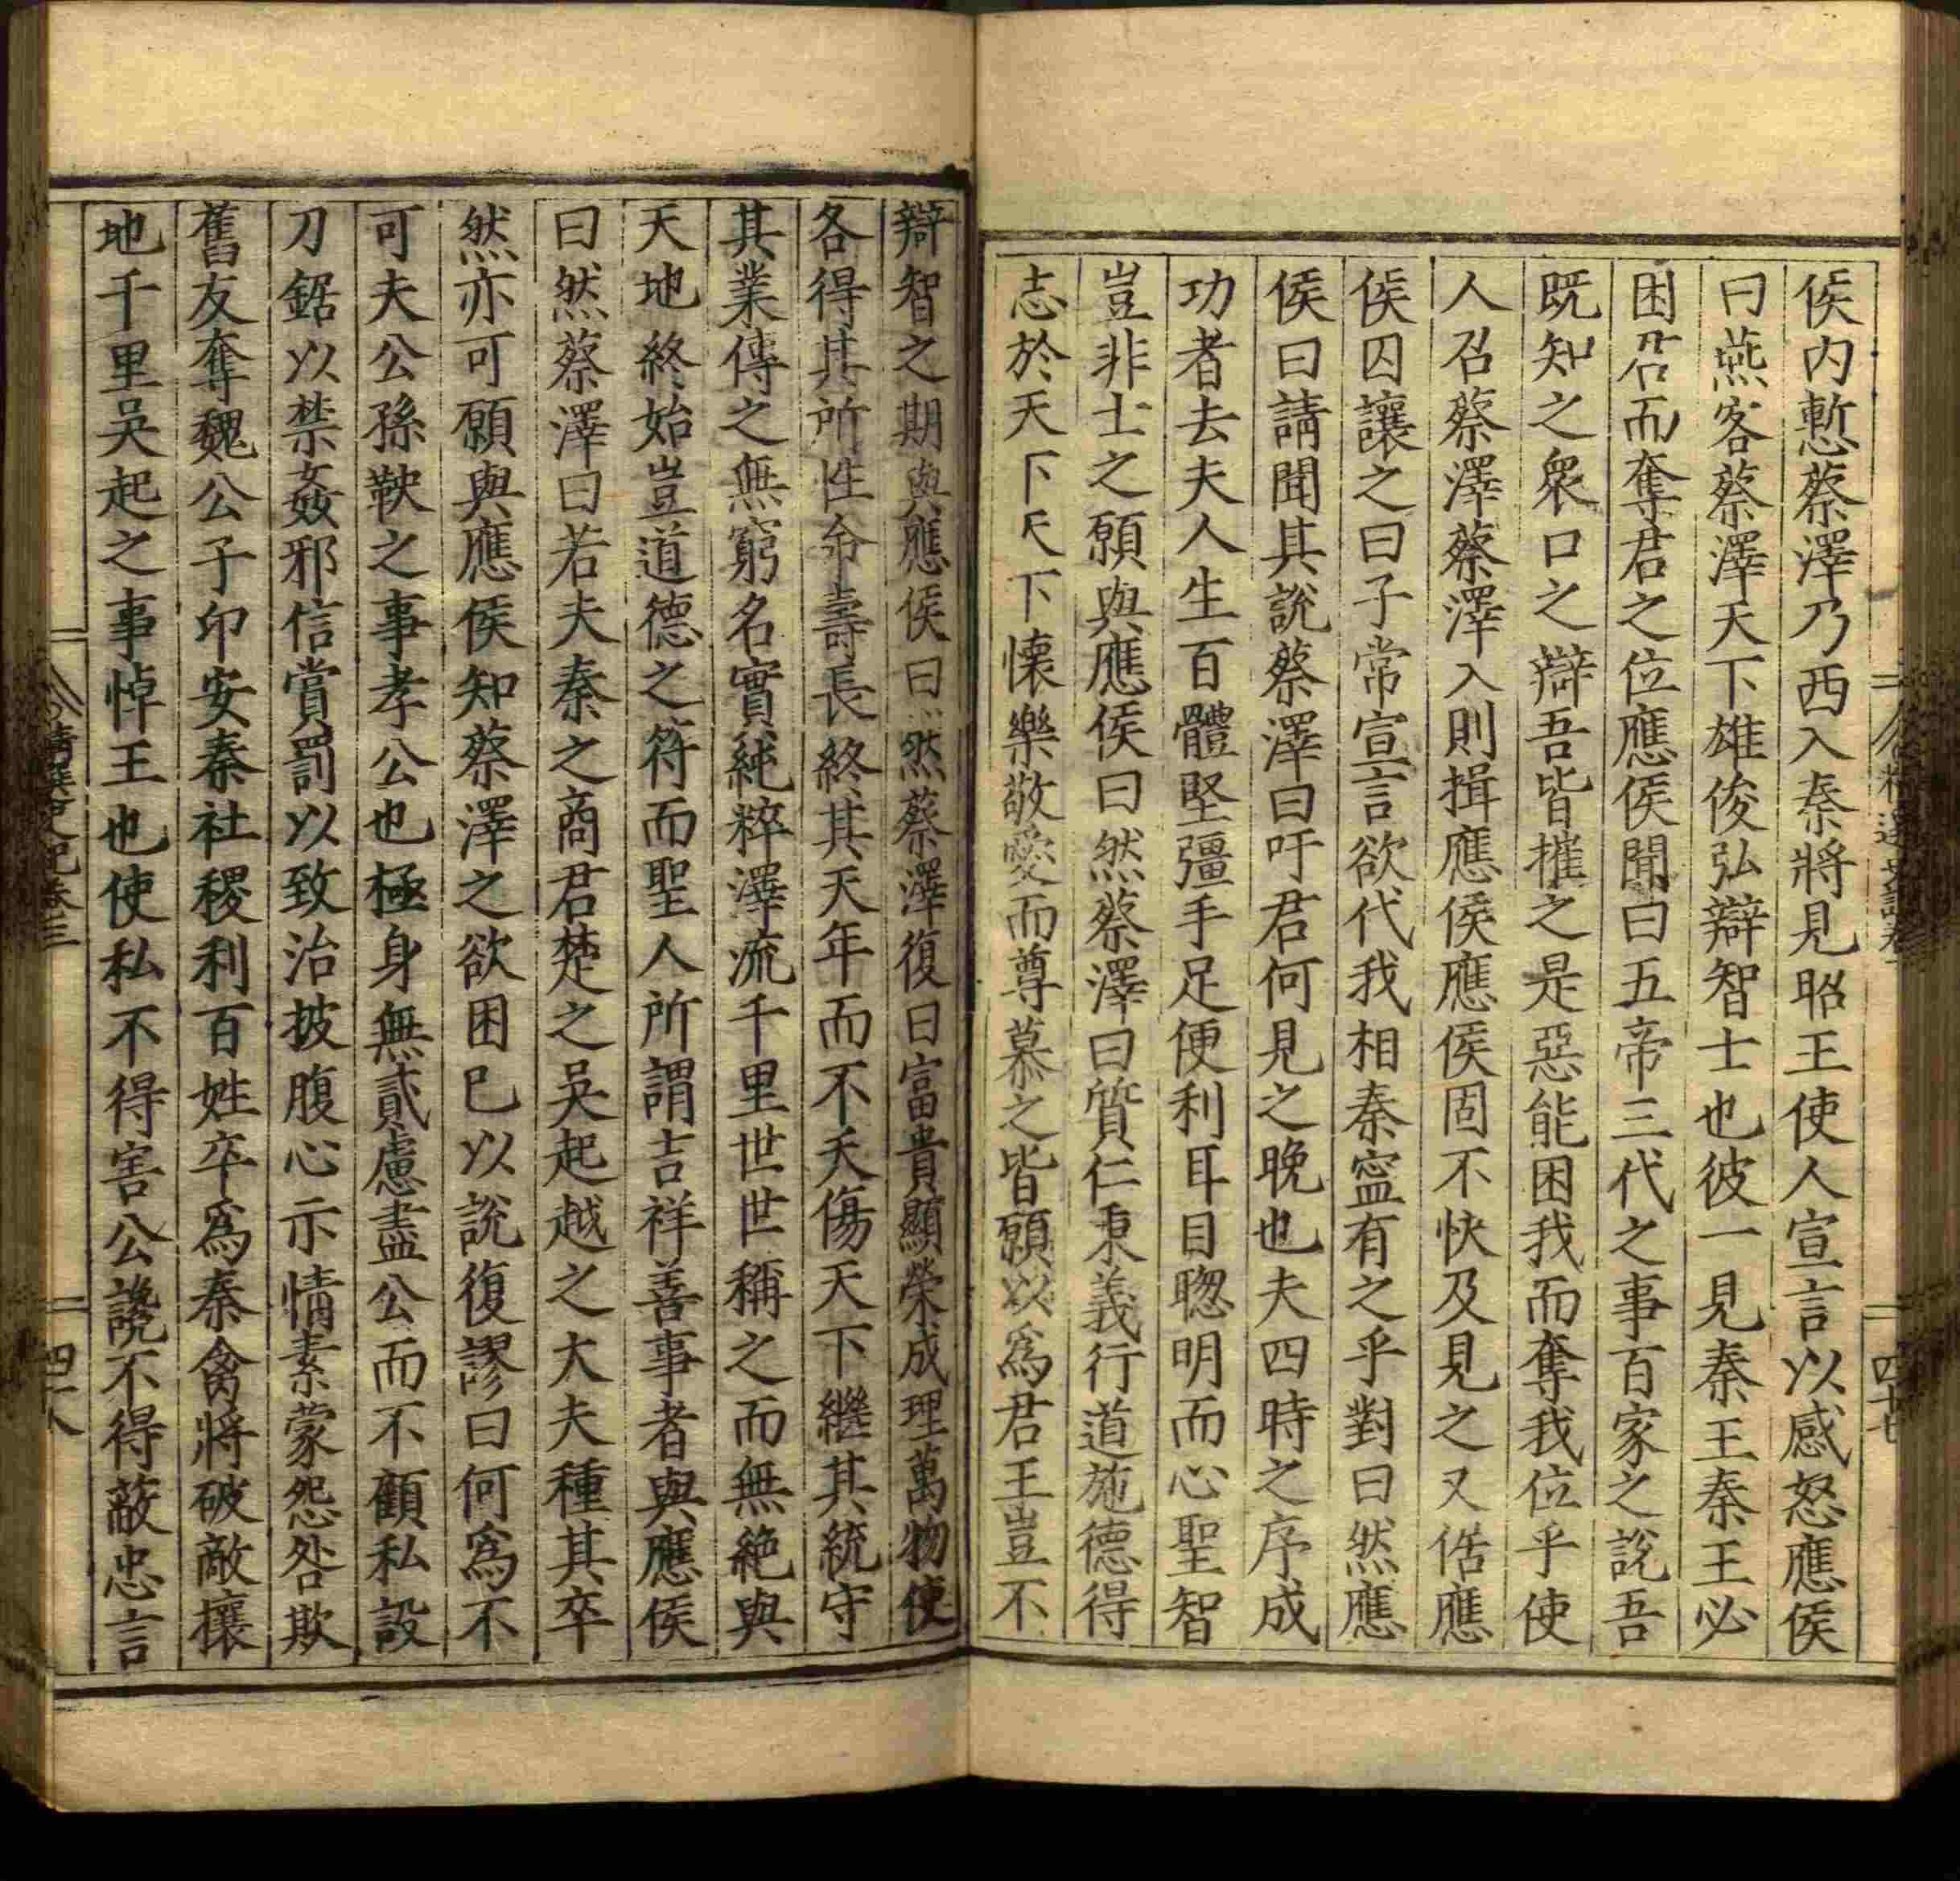 侯內慙蔡澤乃西入秦將見昭王使人宣言以感怒應侯
曰燕客蔡澤天下雄俊弘辯智士也彼一見秦王秦王必
困君而奪君之位應侯聞曰五帝三代之事百家之說吾
既知之衆口之辯吾皆摧之是惡能困我而奪我位乎使
人召蔡澤蔡澤入則揖應侯應侯固不快及見之又倨應
侯因讓之曰子常宣言欲代我相秦寍有之乎對曰然應
侯曰請聞其說蔡澤曰吁君何見之晚也夫四時之序成
功者去夫人生百體堅彊手足便利耳目聰明而心聖智
豈非士之願與應侯曰然蔡澤曰質仁秉義行道施德得
志於天下天下懷樂敬愛而尊慕之皆願以爲君王豈不
辯智之期與應侯曰然蔡澤復曰富貴顯榮成理萬物使
各得其所性命壽長終其天年而不夭傷天下繼其統守
其業傳之無窮名實純粹澤流千里世世稱之而無絕與
天地終始豈道德之符而聖人所謂吉祥善事者與應侯
曰然蔡澤曰若夫秦之商君楚之吳起越之大夫種其卒
然亦可願與應侯知蔡澤之欲困已以說復謬曰何爲不
可夫公孫鞅之事孝公也極身無貳慮盡公而不顧私設
刀鋸以禁姦邪信賞罰以致治披腹心示情素蒙怨咎欺
舊友奪魏公子卬安秦社稷利百姓卒爲秦禽將破敵攘
地千里吳起之事悼王也使私不得害公讒不得蔽忠言
精選史記卷三
四十八
四十七